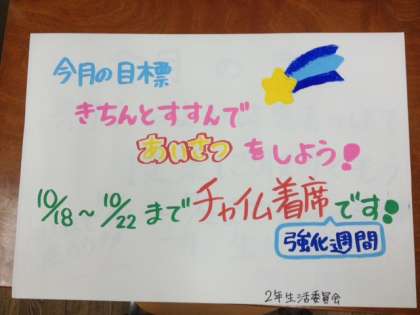 今月の目標
きちんとすすんで
あいさつをしよう!
10/18〜10/22までチャイム着席です!
強化週間
2年生活委員会